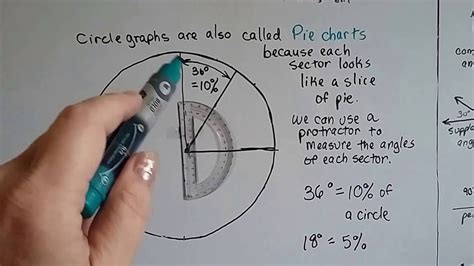 Circle graphs are also called Pie charts
because each
sector looks
like a slice
of pie.
we can use a
protractor to
measure the angles
of each sector.
36° = 10% of
a circle
18° = 5%
36°
= 10%
30°